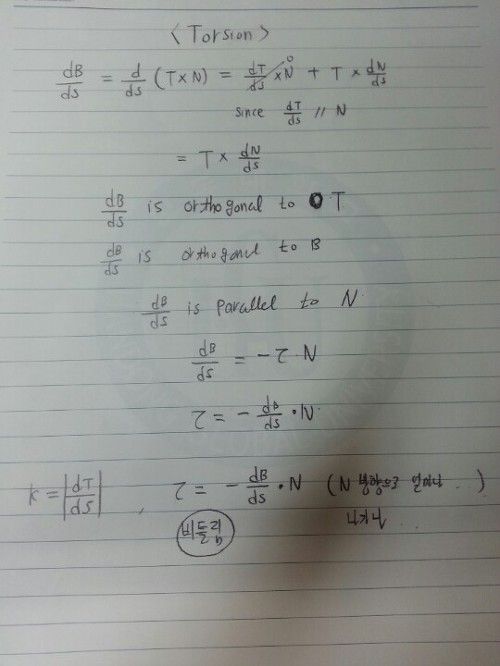 < Torsion >
dB/ds = d/ds (T×N) = dT/ds ×N 0 + T × dN/ds
since dT/ds // N
= T × dN/ds
dB/ds is orthogonal to T
dB/ds is orthogonal to B
dB/ds is parallel to N.
dB/ds = -τ N
τ = - dB/ds · N.
K = |dT/ds| , τ = - dB/ds · N (N 방향으로 얼마나 ..)
비틀림